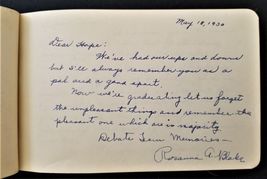 May 18, 1930
Dear Hope:
We've had our ups and downs
but I'll always remember you as a
pal and a good sport.
Now we're graduating let us forget
the unpleasant things and remember the
pleasant one which are in majority.
Debate Team Memories—
Rosanna A. Blake